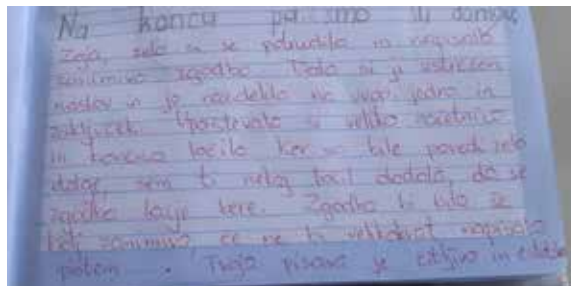 Na koncu pa smo šli domov.
Zoja, zelo si se potrudila in napisala
zanimivo zgodbo. Dala si ji ustrezen
naslov in jo razdelila na uvod, jedro in
zaključek. Upoštevala si veliko začetnico
in končna ločila. Ker so bile povedi zelo
dolge, sem ti nekaj ločil dodala, da se
zgodba lažje bere. Zgodba bi bila še
bolj zanimiva, če ne bi velikokrat napisala
potem. Tvoja pisava je čitljiva in